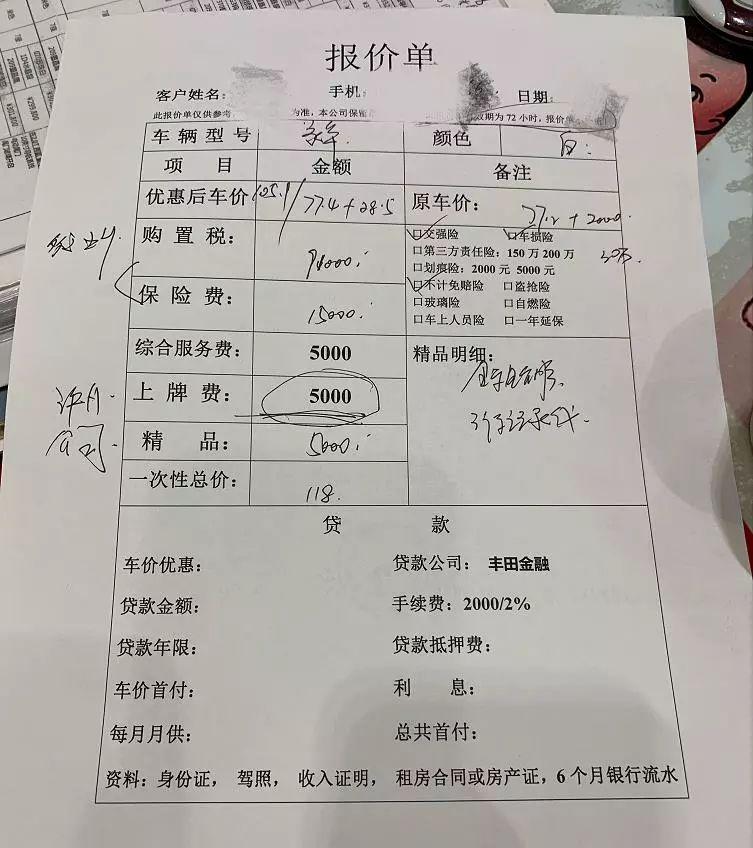 报价单
客户姓名： 手机： 日期：
此报价单仅供参考， 为准，本公司保留 效期为 72 小时，报价单
车辆型号 颜色 白
项 目 金额 备注
优惠后车价 105.9/77.4+28.5 原车价： 77.2+2000
购置税： 94000 ☑交强险 ☑车损险
□第三方责任险：150 万 200 万
□划痕险：2000 元 5000 元
保险费： 15000 ☑不计免赔险 □盗抢险
□玻璃险 □自燃险
□车上人员险 □一年延保
综合服务费： 5000 精品明细：
上牌费： 5000
精 品： 5000
公司
一次性总价： 118
贷 款
车价优惠： 贷款公司：丰田金融
贷款金额： 手续费：2000/2%
贷款年限： 贷款抵押费：
车价首付： 利 息：
每月月供： 总共首付：
资料：身份证， 驾照， 收入证明， 租房合同或房产证，6 个月银行流水